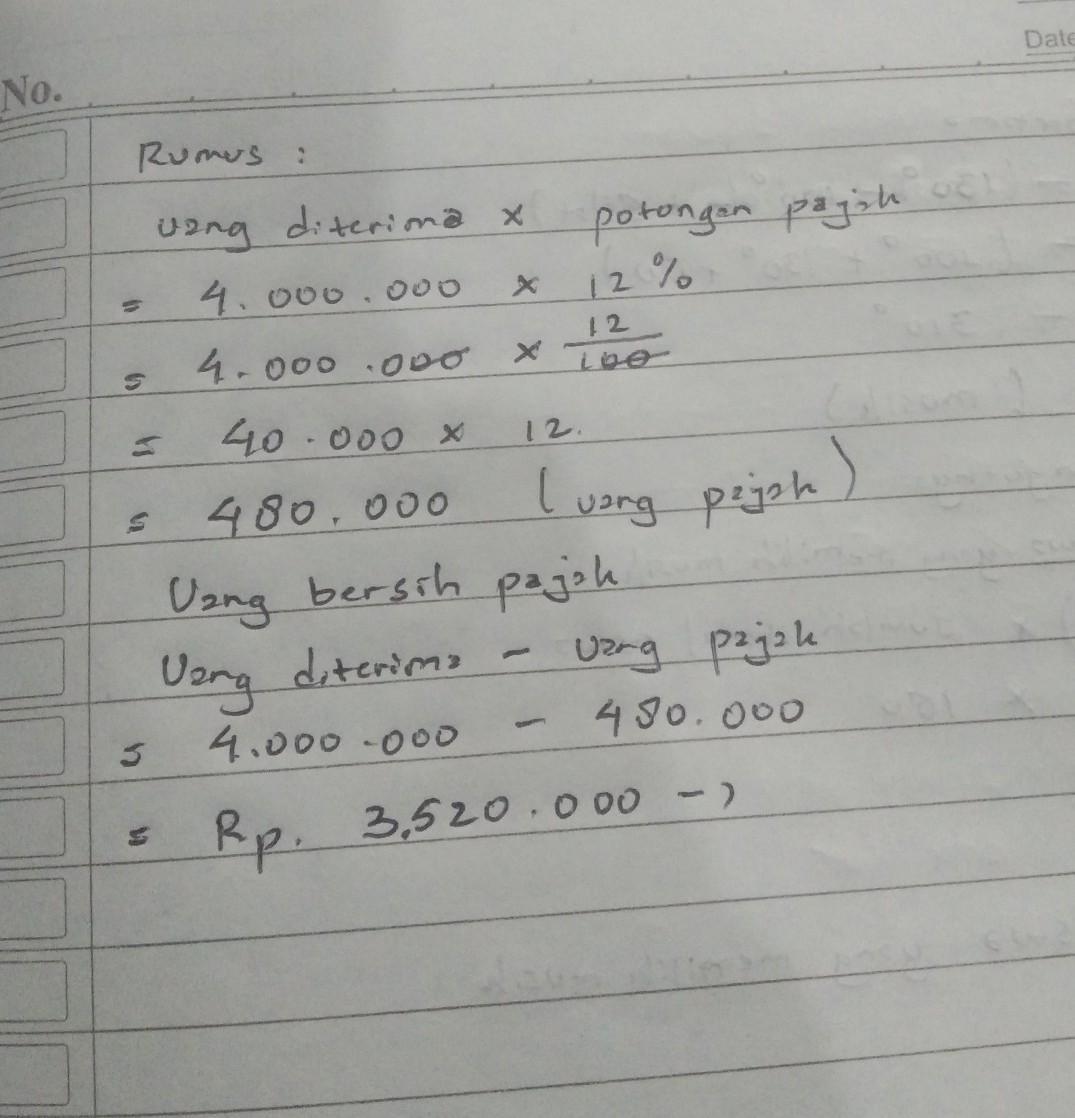 Date
No.
Rumus :
uang diterima x potongan pajak
= 4.000.000 x 12%
= 4.000.000 x 12/100
= 40.000 x 12.
= 480.000 (uang pajak)
Uang bersih pajak
Uang diterima - uang pajak
= 4.000.000 - 480.000
= Rp. 3.520.000 -,